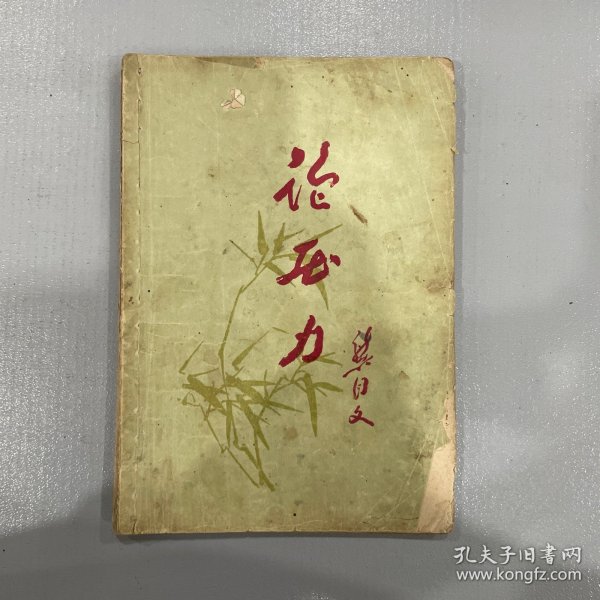 论压力
孔夫子旧書网
www.kongfz.com